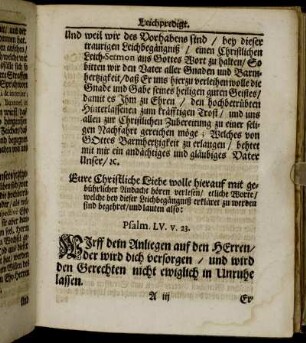 Leichpredigt.
Und weil wir des Vorhabens sind / bey dieser
traurigen Leichbegängnuß / einen Christlichen
Leich-Sermon aus Gottes Wort zu halten / So
bitten wir den Vater aller Gnaden und Barm-
hertzigkeit / daß Er uns hierzu verleihen wolle die
Gnade und Gabe seines heiligen guten Geistes /
damit es Ihm zu Ehren / den hochbetrübten
Hinterlassenen zum kräfftigen Trost / und uns
allen zur Christlichen Zubereitung zu einer seli-
gen Nachfahrt gereichen möge : Welches von
GOttes Barmhertzigkeit zu erlangen / behtet
mit mir ein andächtiges und gläubiges Vater
Unser / ꝛc.
Eure Christliche Liebe wolle hierauf mit ge-
bührlicher Andacht hören verlesen / etliche Worte /
welche bey dieser Leichbegängnüß erkläret zu werden
sind begehret / und lauten also:
Psalm. LV. v. 23.
Wirff dein Anliegen auf den HErren /
der wird dich versorgen / und wird
den Gerechten nicht ewiglich in Unruhe
lassen.
A iij